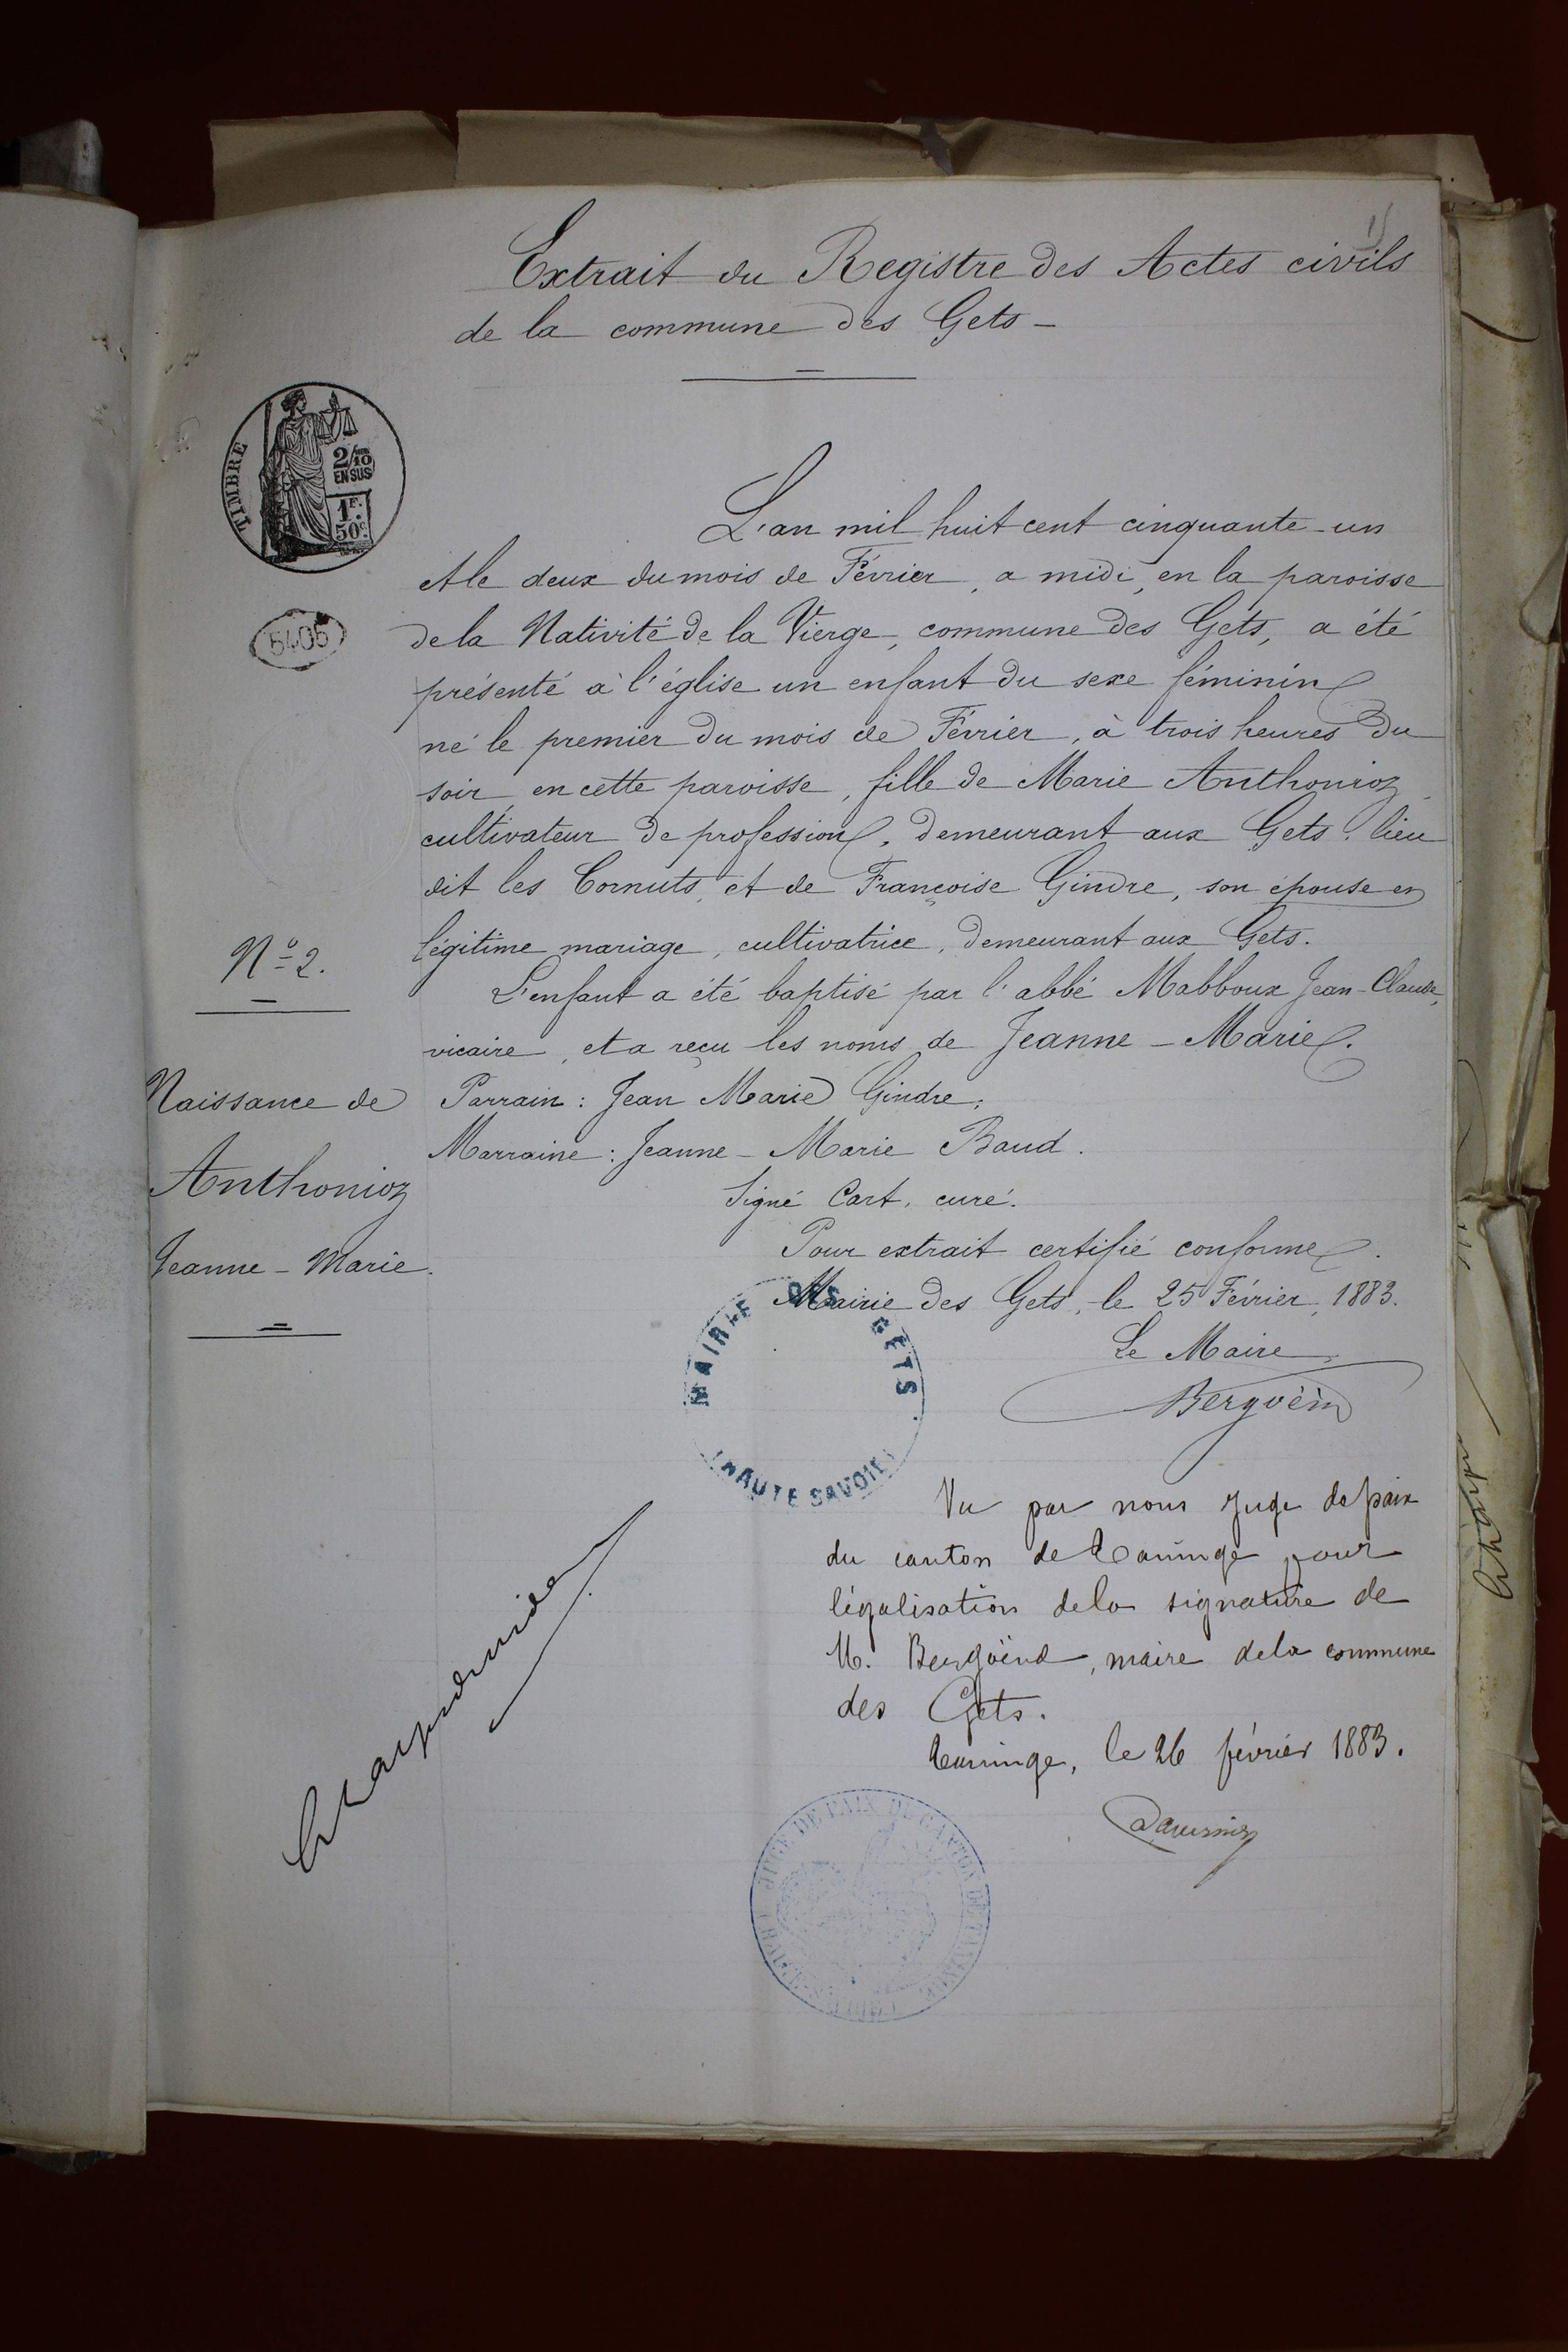 Extrait du Registre des Actes civils
de la commune des Gets -
TIMBRE
2/10
EN SUS
1F.
50c.
5405
L'an mil huit cent cinquante-un
et le deux du mois de Février, a midi, en la paroisse
de la Nativité de la Vierge, commune des Gets, a été
présenté à l'église un enfant du sexe féminin
né le premier du mois de Février, à trois heures du
soir, en cette paroisse, fille de Marie Anthonioz
cultivateur de profession, demeurant aux Gets, lieu
dit les Cornuts, et de Françoise Gindre, son épouse en
légitime mariage, cultivatrice, demeurant aux Gets.
L'enfant a été baptisé par l'abbé Mabboux Jean-Claude,
vicaire, et a reçu les noms de Jeanne-Marie.
Parrain : Jean Marie Gindre;
Marraine : Jeanne-Marie Baud.
Signé Cart, curé.
Nº 2.
Naissance de
Anthonioz
Jeanne-Marie.
Pour extrait certifié conforme.
Mairie des Gets, le 25 Février, 1883.
Le Maire
MAIRIE DES GETS
(HAUTE SAVOIE)
Vu par nous Juge de paix
du canton de Taninge pour
légalisation de la signature de
M. Bergoënd, maire de la commune
des Gets.
Taninge, le 26 février 1883.
JUGE DE PAIX DU CANTON DE